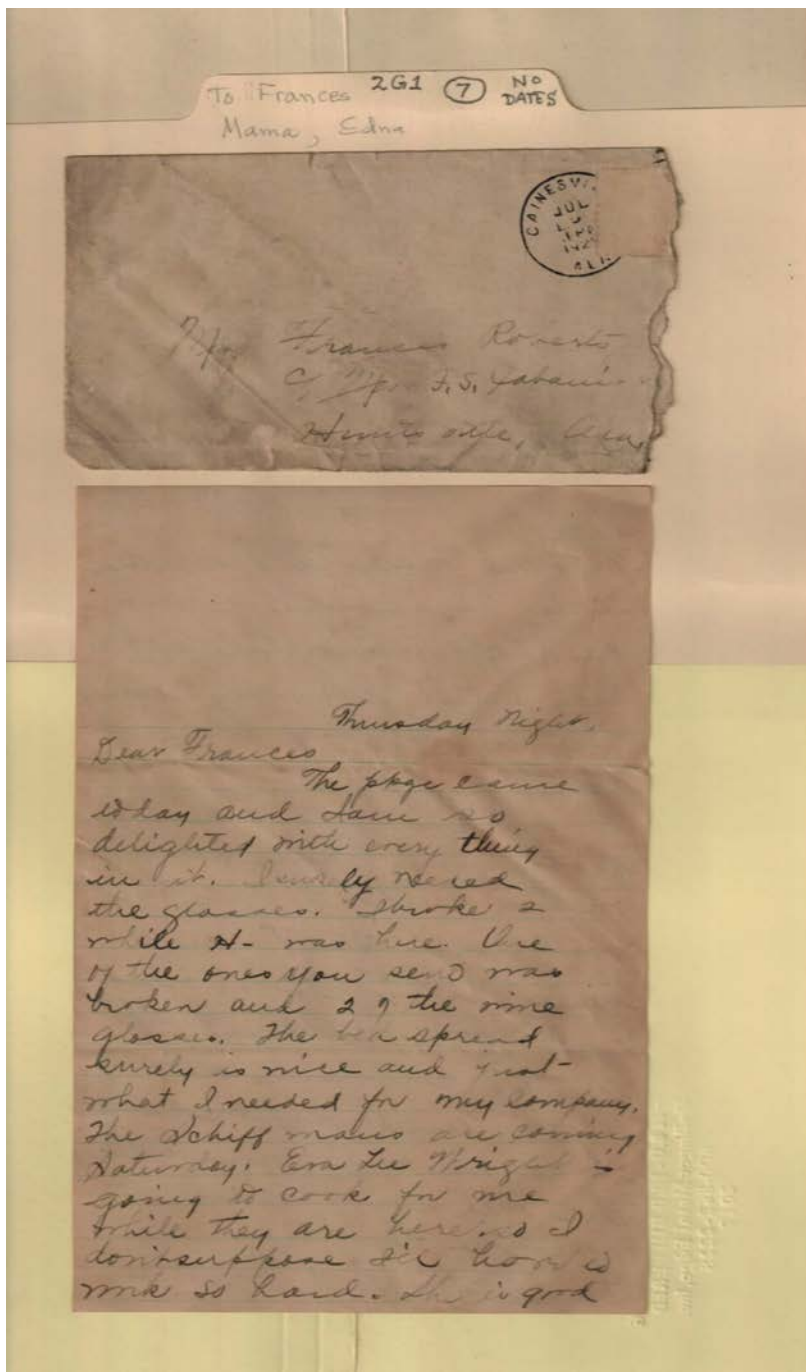 To Frances 2G1 7 NO
DATES
Mama, Edna
GAINESVI
JUL
ALA
Frances Roberts
c/ F.S.
Ala.
Thursday Night.
Dear Frances
The pkge came
today and I am so
delighted with every thing
in it. I surely needed
the glasses. I broke 2
while H- was here. One
of the ones you send was
broken and 2 of the wine
glasses. The bed spread
surely is nice and just
what I needed for my company.
The Schiffmans are coming
Saturday. Eva Lee Wright is
going to cook for me
while they are here so I
don't suppose I'll have to
work so hard. She is good